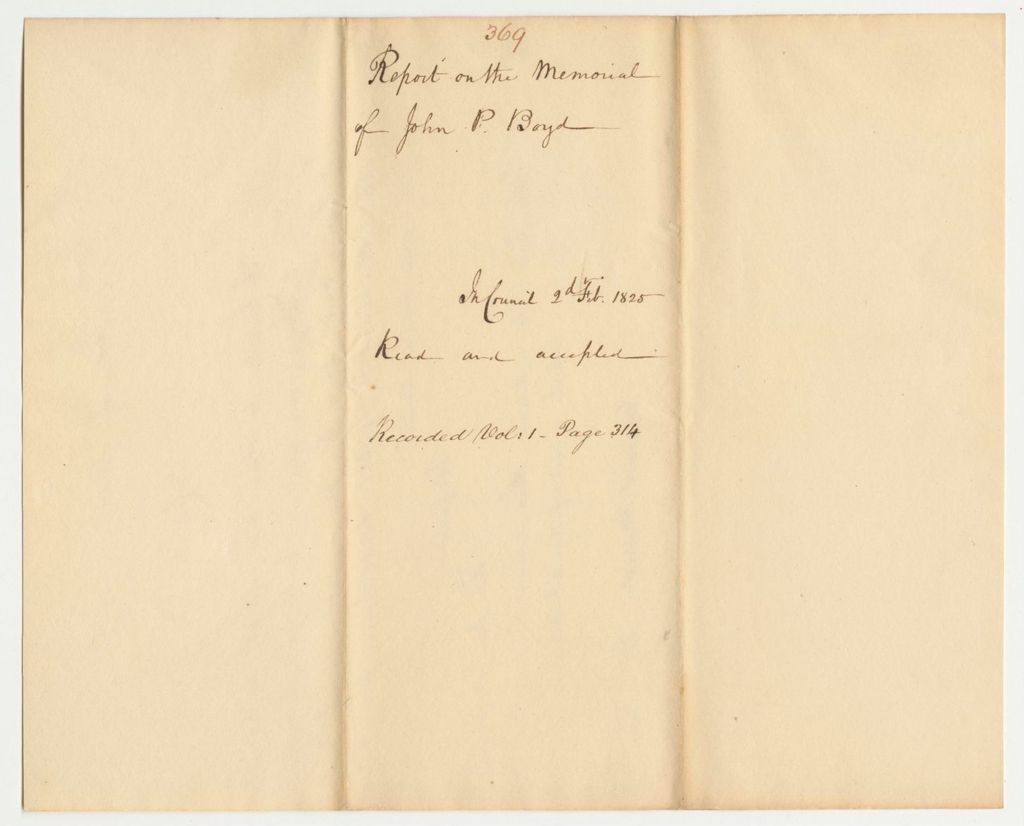 369
Report on the Memorial
of John P. Boyd
In Council 2d Feb. 1825
Read and accepted
Recorded Vol: 1 - Page 314